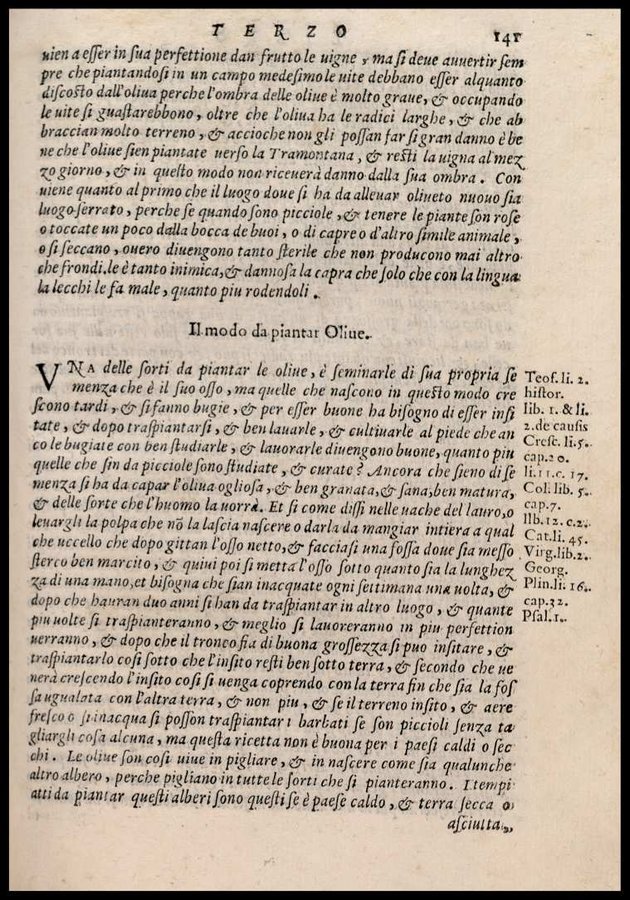 TERZO 141
uien a esser in sua perfettione dan frutto le uigne, ma si deue auuertir sem
pre che piantandosi in un campo medesimo le uite debbano esser alquanto
discosto dall'oliua perche l'ombra delle oliue è molto graue, & occupando
le uite si guastarebbono, oltre che l'oliua ha le radici larghe, & che ab
braccian molto terreno, & accioche non gli possan far si gran danno è be
ne che l'oliue sien piantate uerso la Tramontana, & resti la uigna al mez
zo giorno, & in questo modo non riceuerà danno dalla sua ombra. Con
uiene quanto al primo che il luogo doue si ha da alleuar oliueto nuouo sia
luogo serrato, perche se quando sono picciole, & tenere le piante son rose
o toccate un poco dalla bocca de buoi, o di capre o d'altro simile animale,
o si seccano, ouero diuengono tanto sterile che non producono mai altro
che frondi. le è tanto inimica, & dannosa la capra che solo che con la lingua
la lecchi le fa male, quanto piu rodendoli.
Il modo da piantar Oliue.
VNA delle sorti da piantar le oliue, è seminarle di sua propria se
menza che è il suo osso, ma quelle che nascono in questo modo cre
scono tardi, & si fanno bugie, & per esser buone ha bisogno di esser insi
tate, & dopo traspiantarsi, & ben lauarle, & cultiuarle al piede che an
co le bugiate con ben studiarle, & lauorarle diuengono buone, quanto piu
quelle che sin da picciole sono studiate, & curate? Ancora che sieno di se
menza si ha da capar l'oliua ogliosa, & ben granata, & sana, ben matura,
& delle sorte che l'huomo la uorrà. Et si come dissi nelle uache del lauro, o
leuargli la polpa che nõ la lascia nascere o darla da mangiar intiera a qual
che uccello che dopo gittan l'osso netto, & facciasi una fossa doue sia messo
sterco ben marcito, & quiui poi si metta l'osso sotto quanto sia la lunghez
za di una mano, et bisogna che sian inacquate ogni settimana una uolta, &
dopo che hauran duo anni si han da traspiantar in altro luogo, & quante
piu uolte si traspianteranno, & meglio si lauoreranno in piu perfettion
uerranno, & dopo che il tronco sia di buona grossezza si puo insitare, &
traspiantarlo cosi sotto che l'insito resti ben sotto terra, & secondo che ue
nerà crescendo l'insito cosi si uenga coprendo con la terra fin che sia la fos
sa ugualata con l'altra terra, & non piu, & se il terreno insito, & aere
fresco o si inacqua si posson traspiantar i barbati se son piccioli senza ta
gliargli cosa alcuna, ma questa ricetta non è buona per i paesi caldi o sec
chi. Le oliue son cosi uiue in pigliare, & in nascere come sia qualunche
altro albero, perche pigliano in tutte le sorti che si pianteranno. I tempi
atti da piantar questi alberi sono questi se è paese caldo, & terra secca o
asciutta,
Teof. li. 2.
histor.
lib. 1. & li.
2. de causis
Cresc. li. 5.
cap. 20.
li. 11. c. 17.
Col. lib. 5.
cap. 7.
Ilb. 12. c. 2.
Cat. li. 45.
Virg. lib. 2.
Georg.
Plin. li. 16.
cap. 32.
Psal. 1.